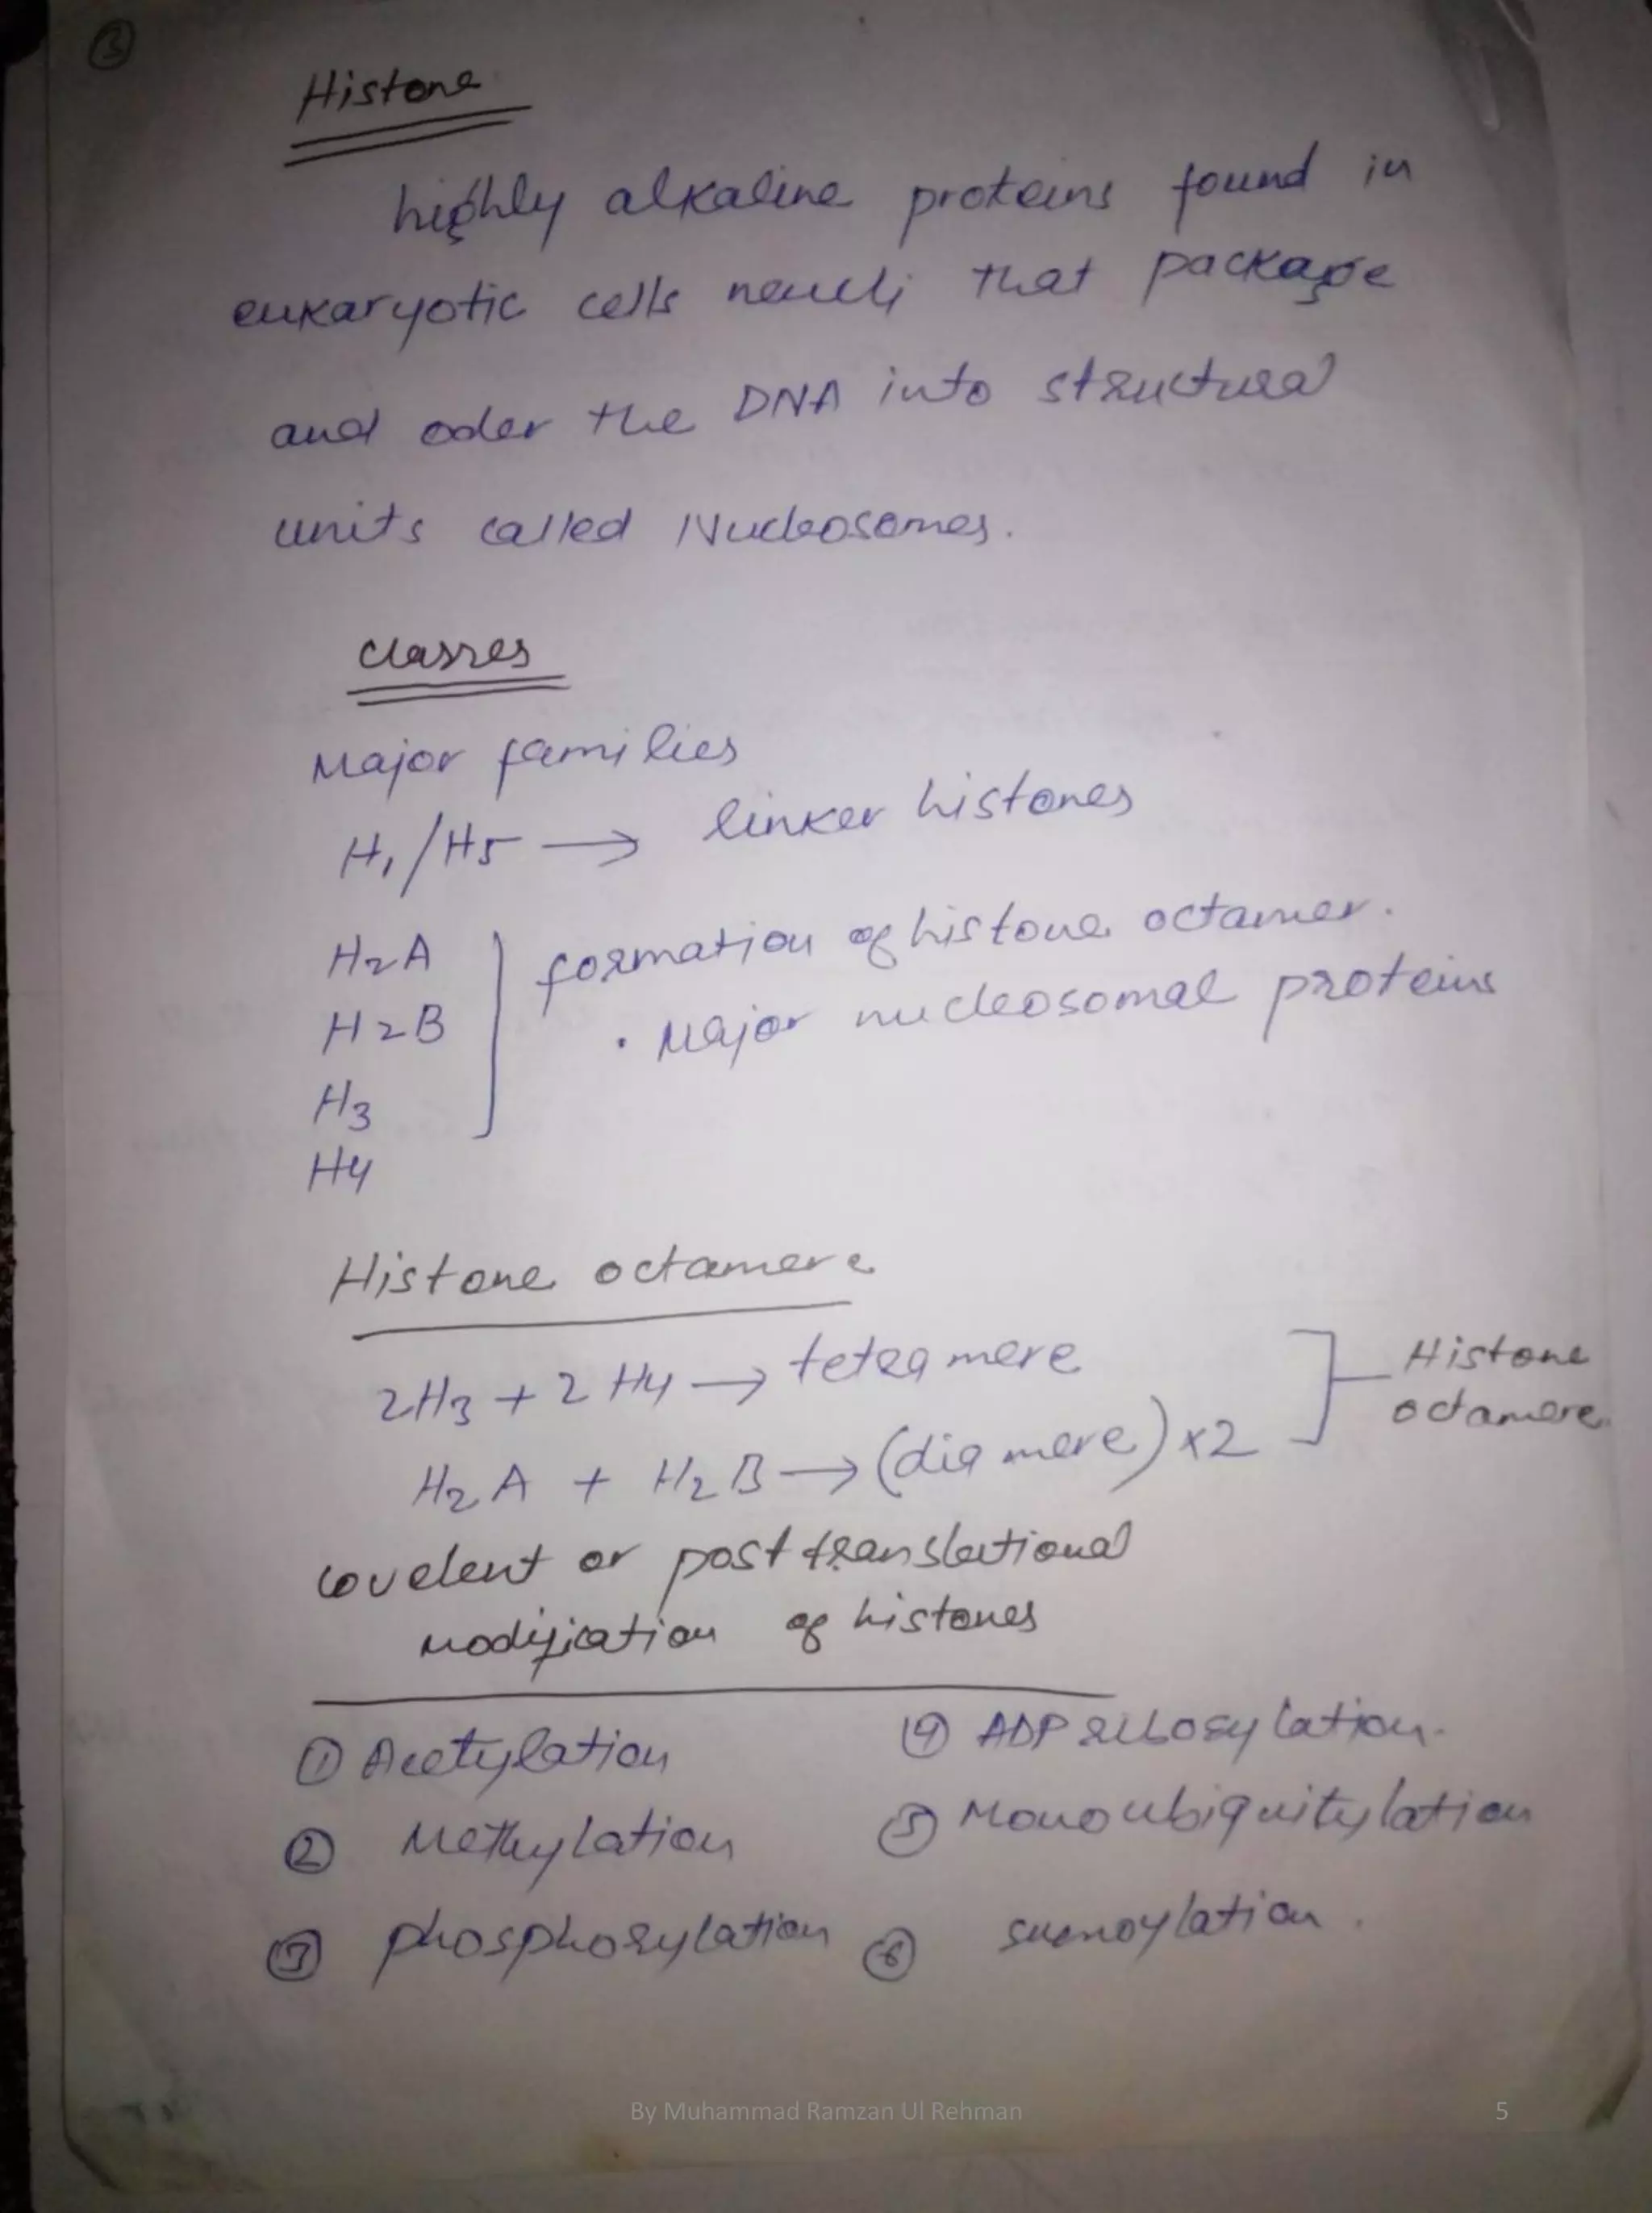 3
Histone
highly alkaline proteins found in
eukaryotic cells neuclli that package
and oder the DNA into structural
units called Nucleosomes.
classes
Major families
H1/H5 → linker histones
H2A
H2B
H3
H4
formation of histone octamer.
. Major nucleosomal proteins
Histone octamere
2H3 + 2H4 → tetramere
H2A + H2B → (diamere) x2
Histone
octamere
covelent or post translational
modification of histones
① Acetylation
② Methylation
③ phosphorylation
④ ADP ribosylation.
⑤ Monoubiquitylation
⑥ sumoylation.
By Muhammad Ramzan Ul Rehman
5